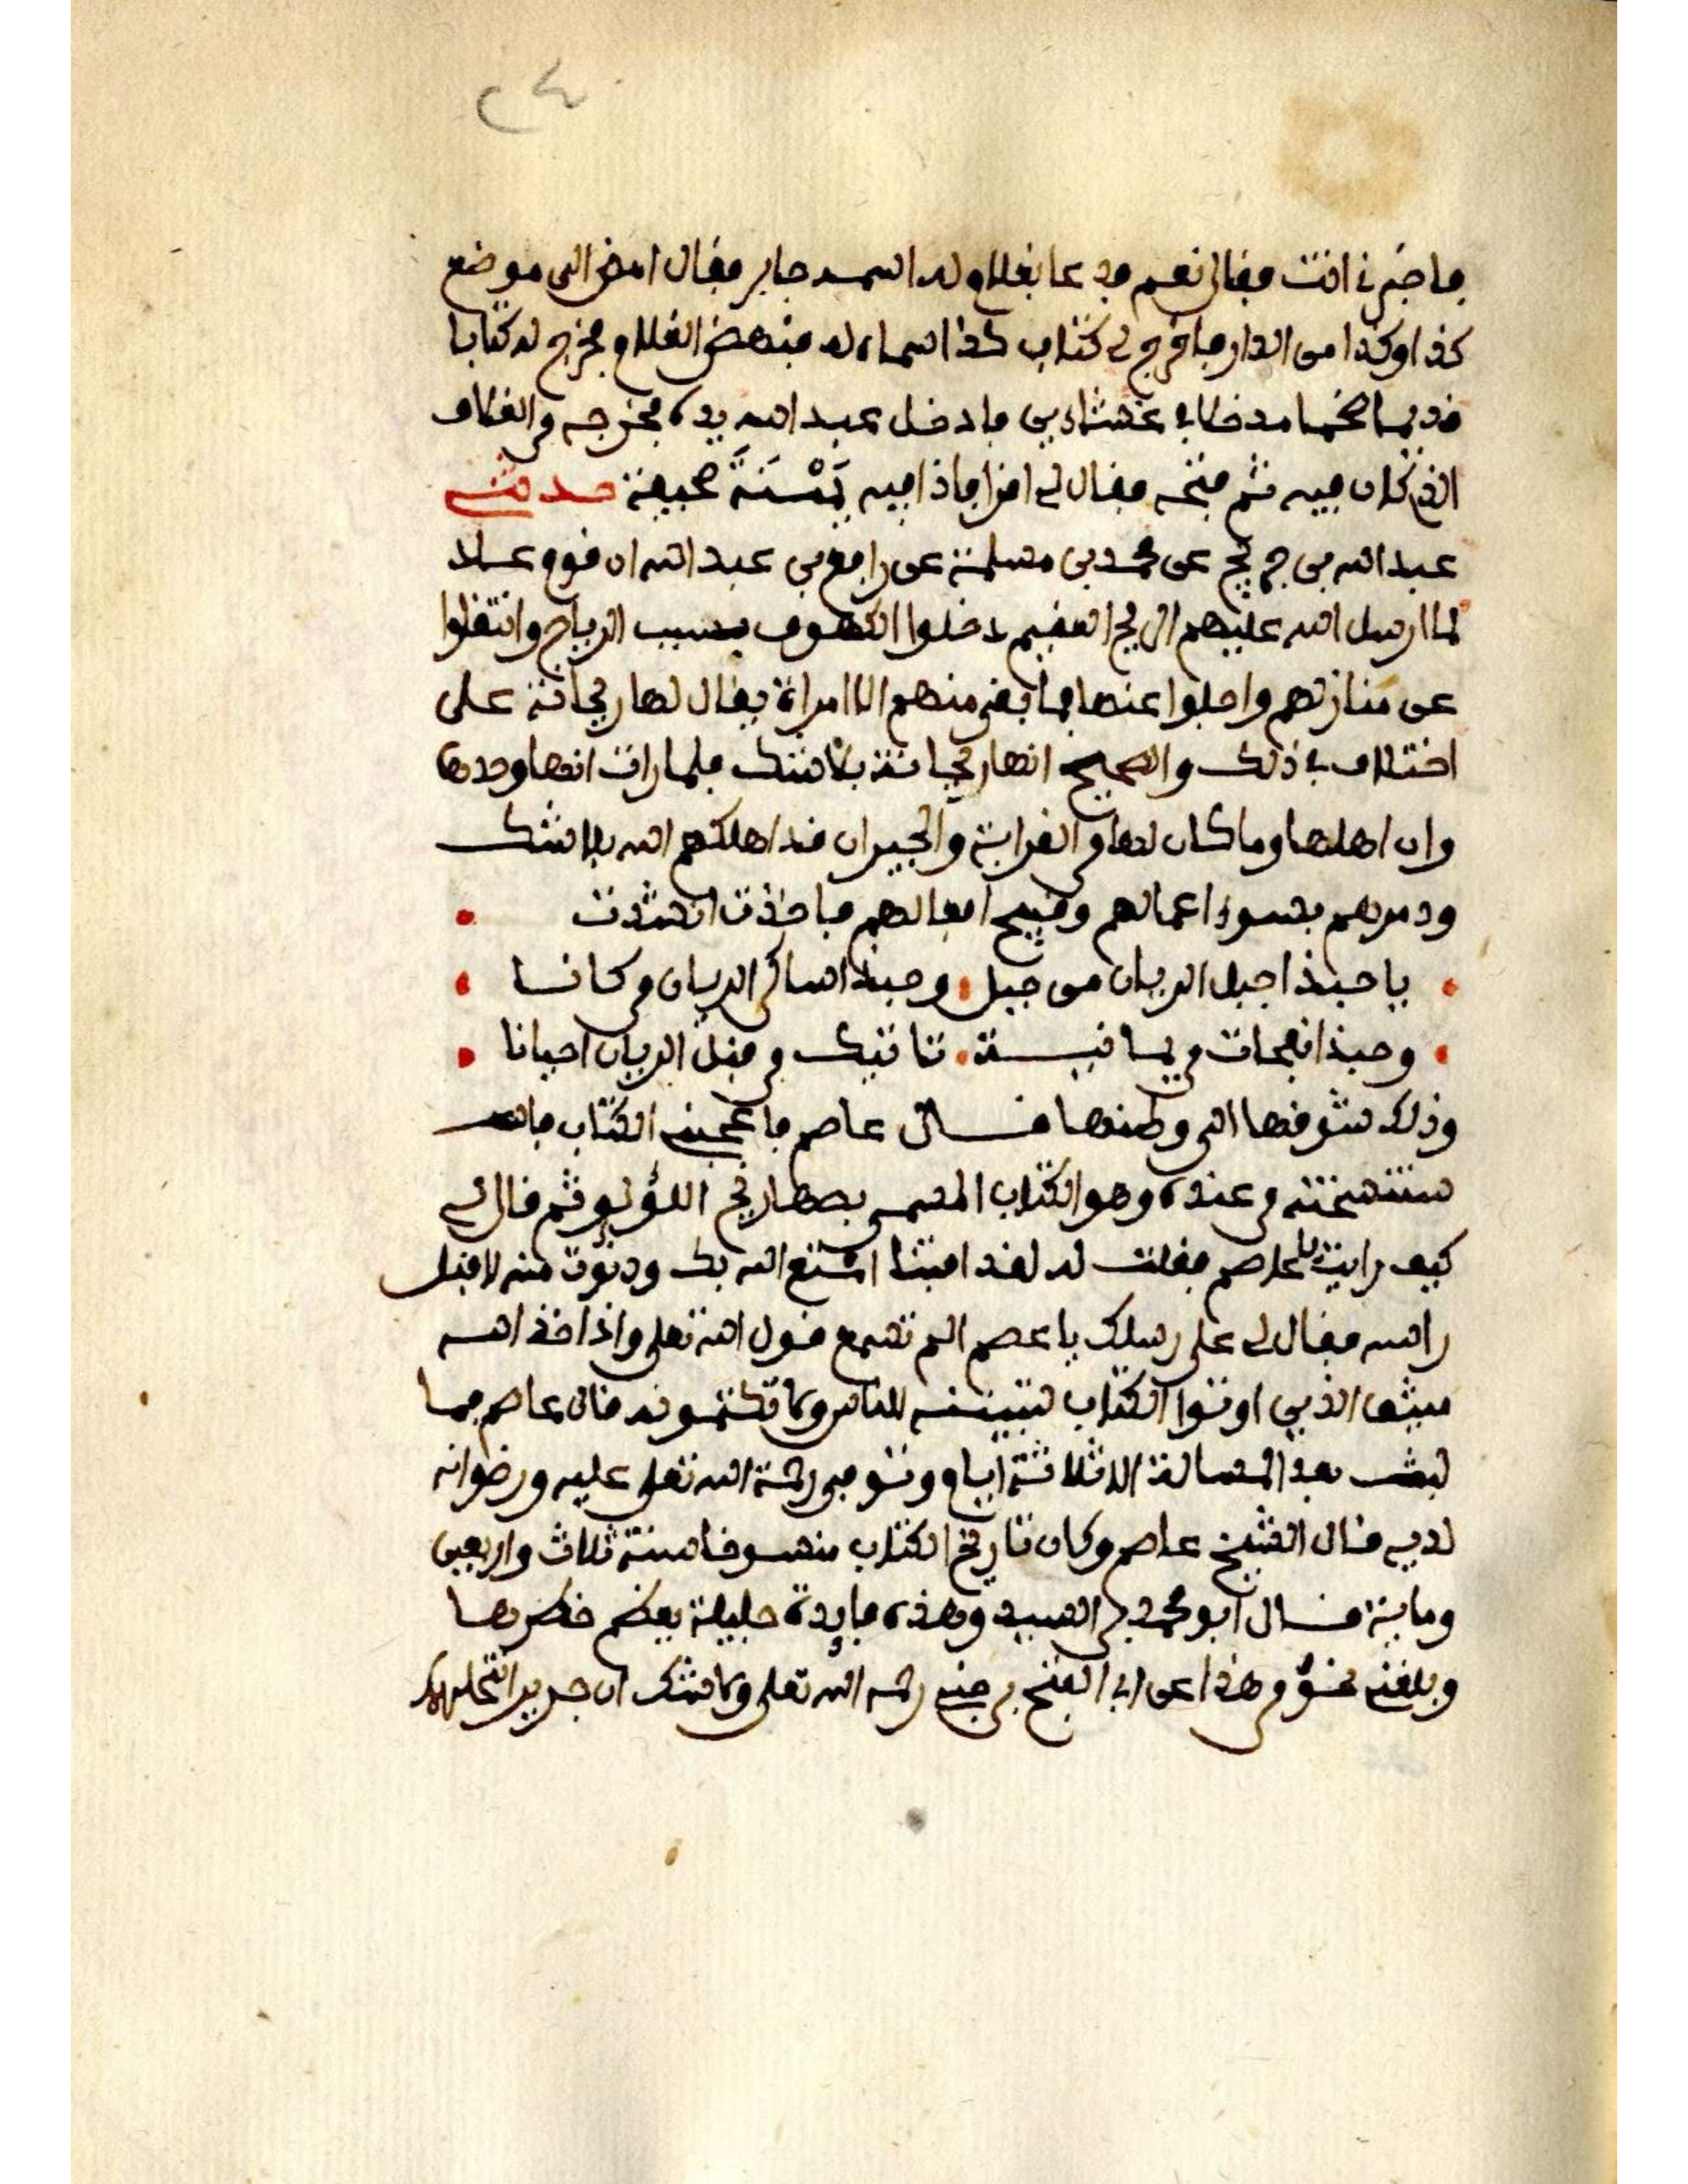 ٢٤
فاخبرني انت فقال نعم فدعا بغلام له اسمه جابر فقال امض الى موضع
كذا وكذا من الدار فاخرج لي كتاب كذا اسماه له فنهض الغلام فخرج له كتابا
قديما ضخما مدخلا في غشاءين فادخل عبد الله يده فخرجه من الغلاف
الذي كان فيه ثم فتحه فقال لي اقرا فاذا فيه بَسْنَدَ صحيفة حدثني
عبد الله بن جريج عن محمد بن مسلمة عن رافع بن عبد الله ان قوم عاد
لما ارسل الله عليهم الريح العقيم دخلوا الكهوف بسبب الرياح وانتقلوا
عن منازلهم واجلوا عنها فما بقي منهم الا امراة يقال لها ريحانة على
اختلاف في ذلك والصحيح انها ريحانة بلا شك فلما رات انها وحدها
وان اهلها وما كان لها من القرابة والجيران قد اهلكهم الله بلا شك
ودمرهم بسوء اعمالهم وقبيح افعالهم فاخذت انشدت
يا حبذا جبل الريان من جبل وحبذا ساكن الريان من كانا
وحبذا نفحات من يمانيـة تاتيك من قبل الريان احيانا
وذلك شوقها الى وطنها قال عاصم فاعجبني الكتاب
ستنسخته من عنده وهو الكتاب المسمى بصهاريج اللؤلؤ ثم قال لي
كيف رايت يا عاصم فقلت له لقد افتنا امتع الله بك ودنوت منه لاقبل
راسه فقال لي على رسلك يا عصم الم تسمع قول الله تعلى واذ اخذ الله
ميثق الذين اوتوا الكتاب لتبيننه للناس ولا تكتمونه قال عاصم فما
لبث بعد المسالة الا ثلاثة ايام وتوفي رحمة الله تعلى عليه ورضوانه
لديه قال الشيخ عاصم وكان تاريخ الكتاب منسوخا سنة ثلاث واربعين
وماية قال ابو محمد بن السيد وهذه فايدة جليلة يعظم خطرها
وبلغني نحوٌ من هذا عن ابي الفتح بن جني رحمه الله تعلى ولا شك ان جرير انتحلها